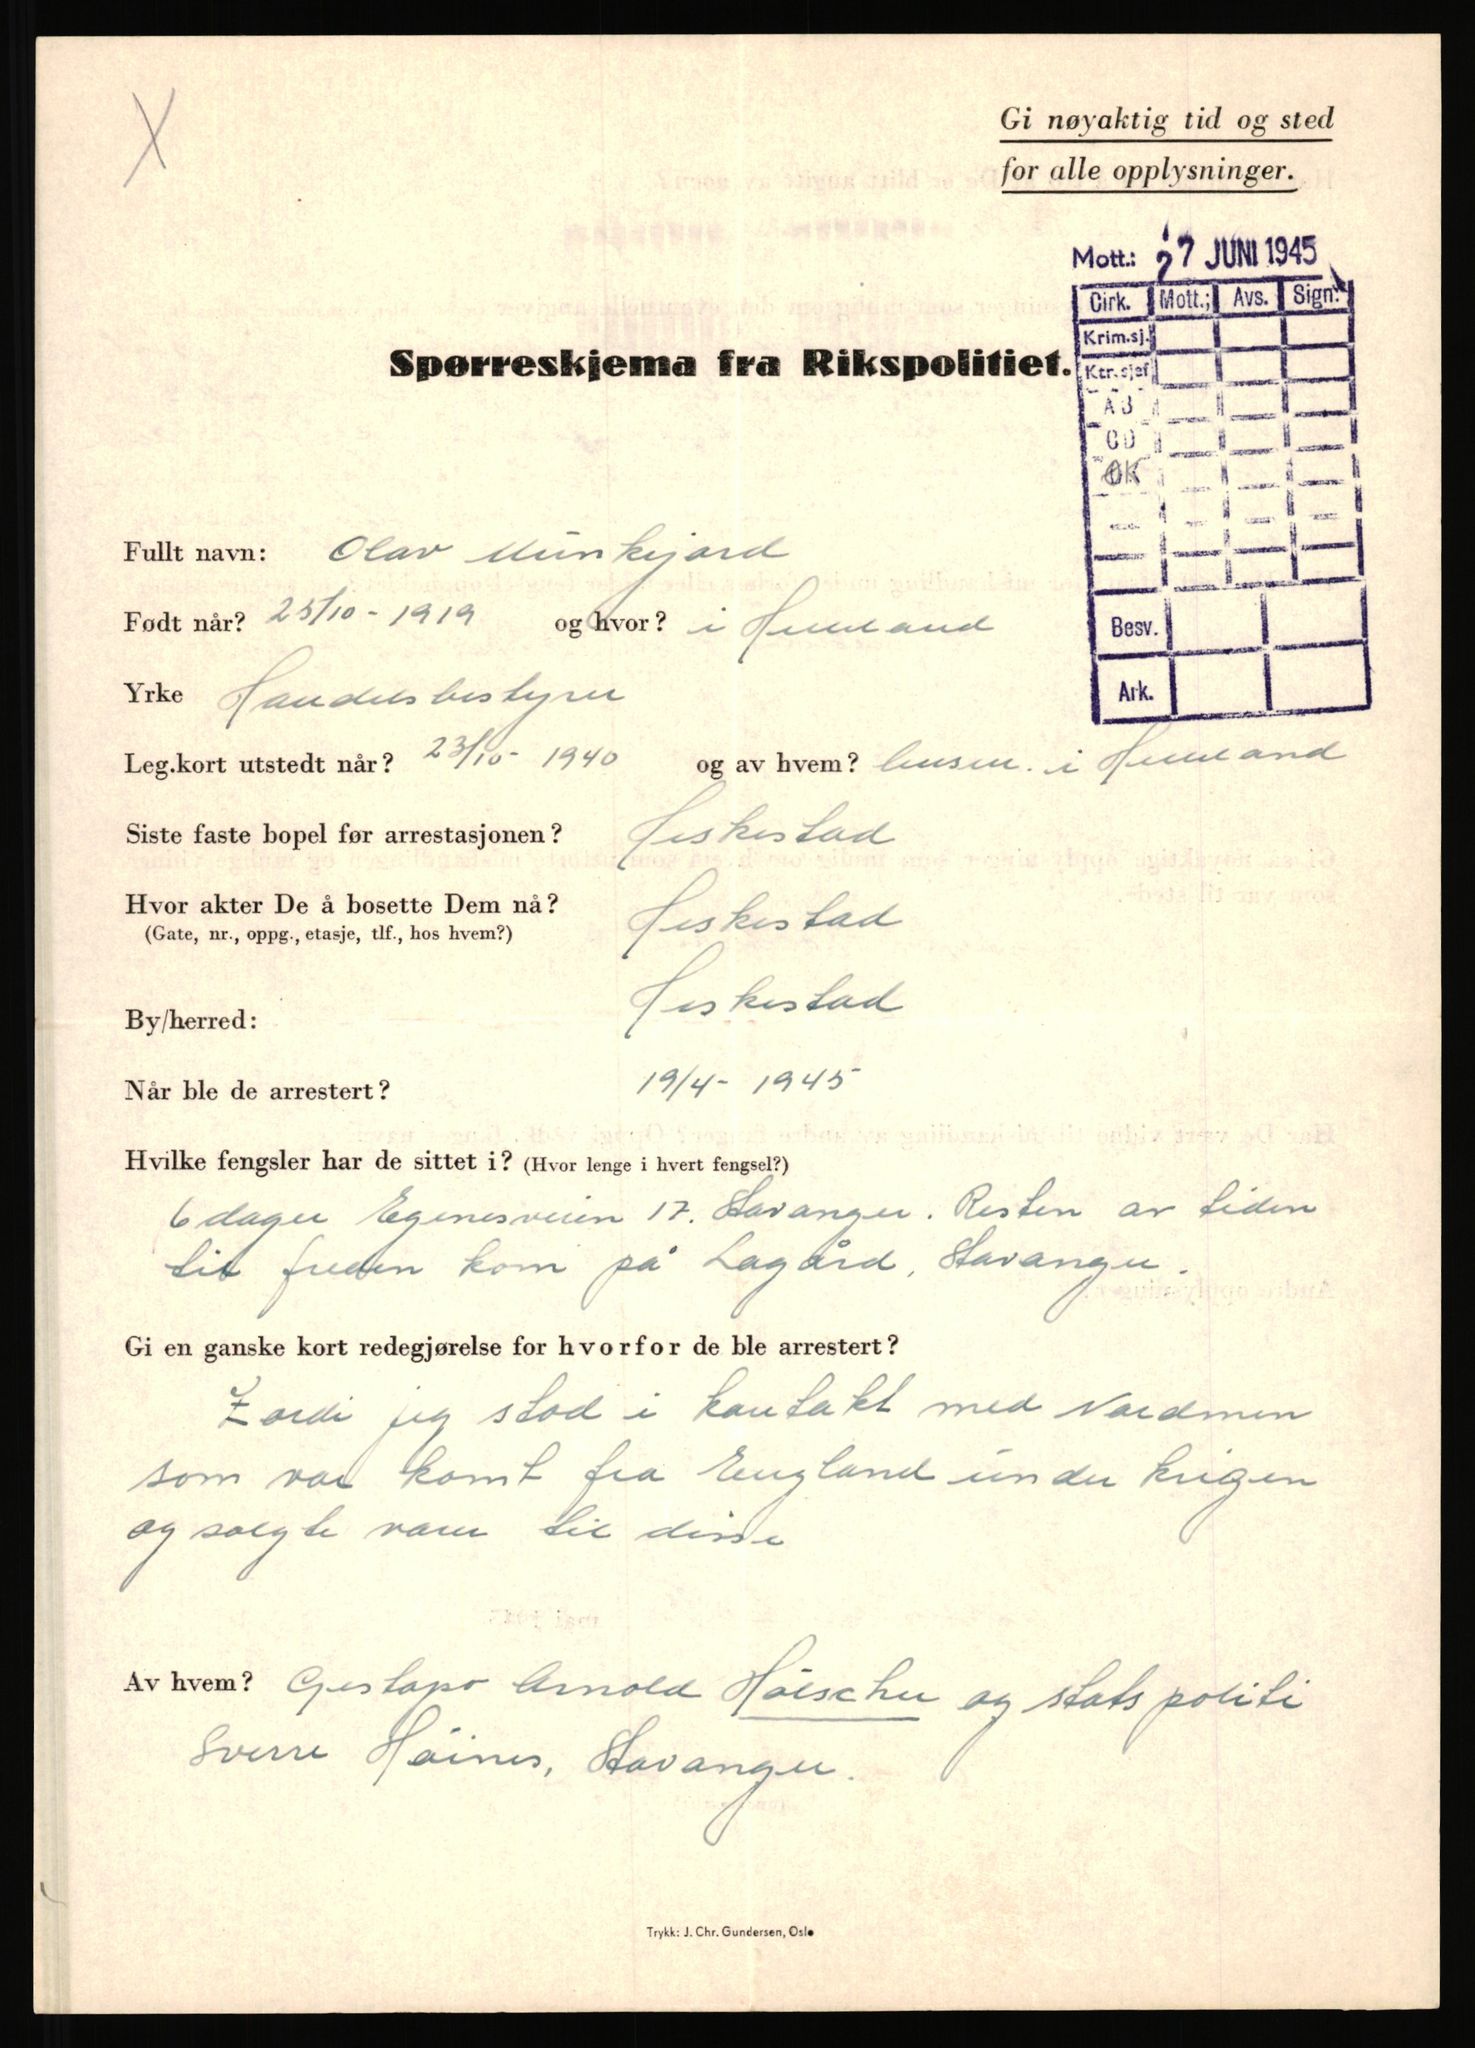 Gi nøyaktig tid og sted
for alle opplysninger.
Mott.: 27 JUNI 1945
Cirk. Mott.; Avs. Sign.
Krim.sj.
Ktr.sjef
AB
CD
ØK
Besv.
Ark.
Spørreskjema fra Rikspolitiet.
Fullt navn: Olav Munkejord
Født når? 25/10 - 1919 og hvor? i Helleland
Yrke Handelsbestyrer
Leg.kort utstedt når? 23/10 - 1940 og av hvem? lensm. i Helleland
Siste faste bopel før arrestasjonen? Heskestad
Hvor akter De å bosette Dem nå? Heskestad
(Gate, nr., oppg., etasje, tlf., hos hvem?)
By/herred: Heskestad
Når ble de arrestert? 19/4 - 1945
Hvilke fengsler har de sittet i? (Hvor lenge i hvert fengsel?)
6 dager Egenesveien 17. Stavanger. Resten av tiden
til freden kom på Lagård, Stavanger.
Gi en ganske kort redegjørelse for hvorfor de ble arrestert?
Fordi jeg stod i kontakt med Nordmen
som var komt fra England under krigen
og solgte varer til disse
Av hvem? Gestapo Arnold Hölscher og statspoliti
Sverre Høines, Stavanger.
Trykk: J. Chr. Gundersen, Oslo